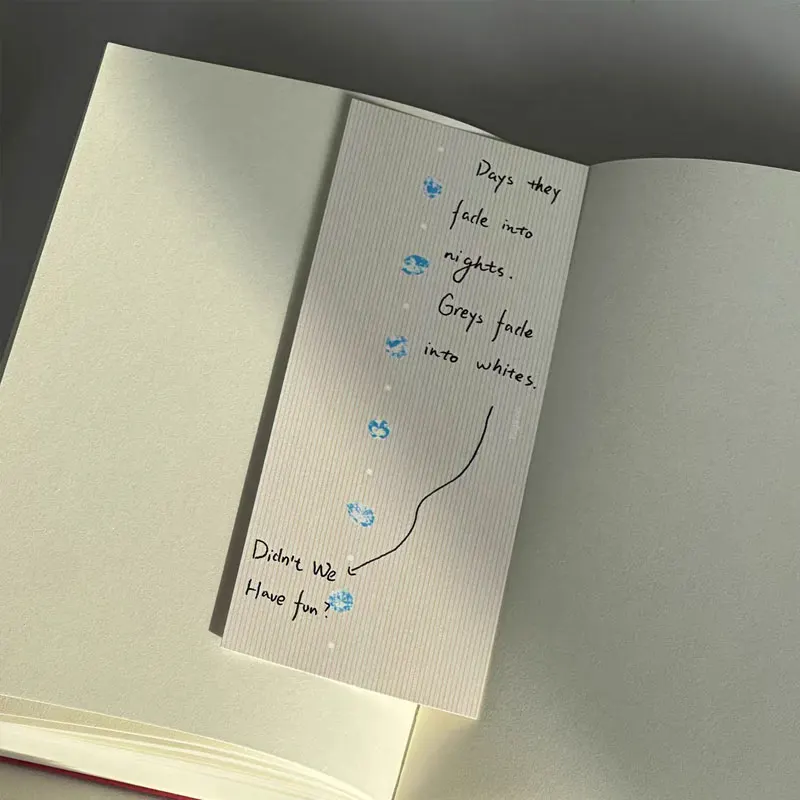 Days they
fade into
nights.
Greys fade
into whites.
Didn't We
Have fun?